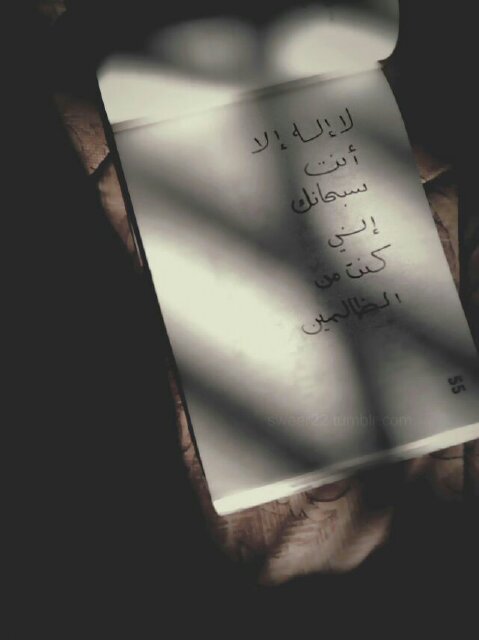 لا إله إلا
أنت
سبحانك
إني
كنت من
الظالمين
55
sweer22.tumblr.com